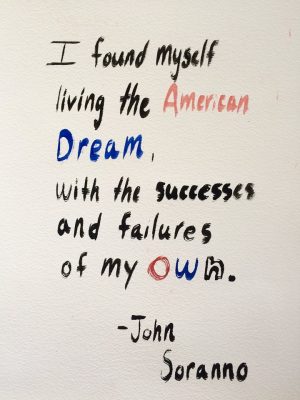 I found myself
living the American
Dream,
with the successes
and failures
of my own.
-John
Soranno